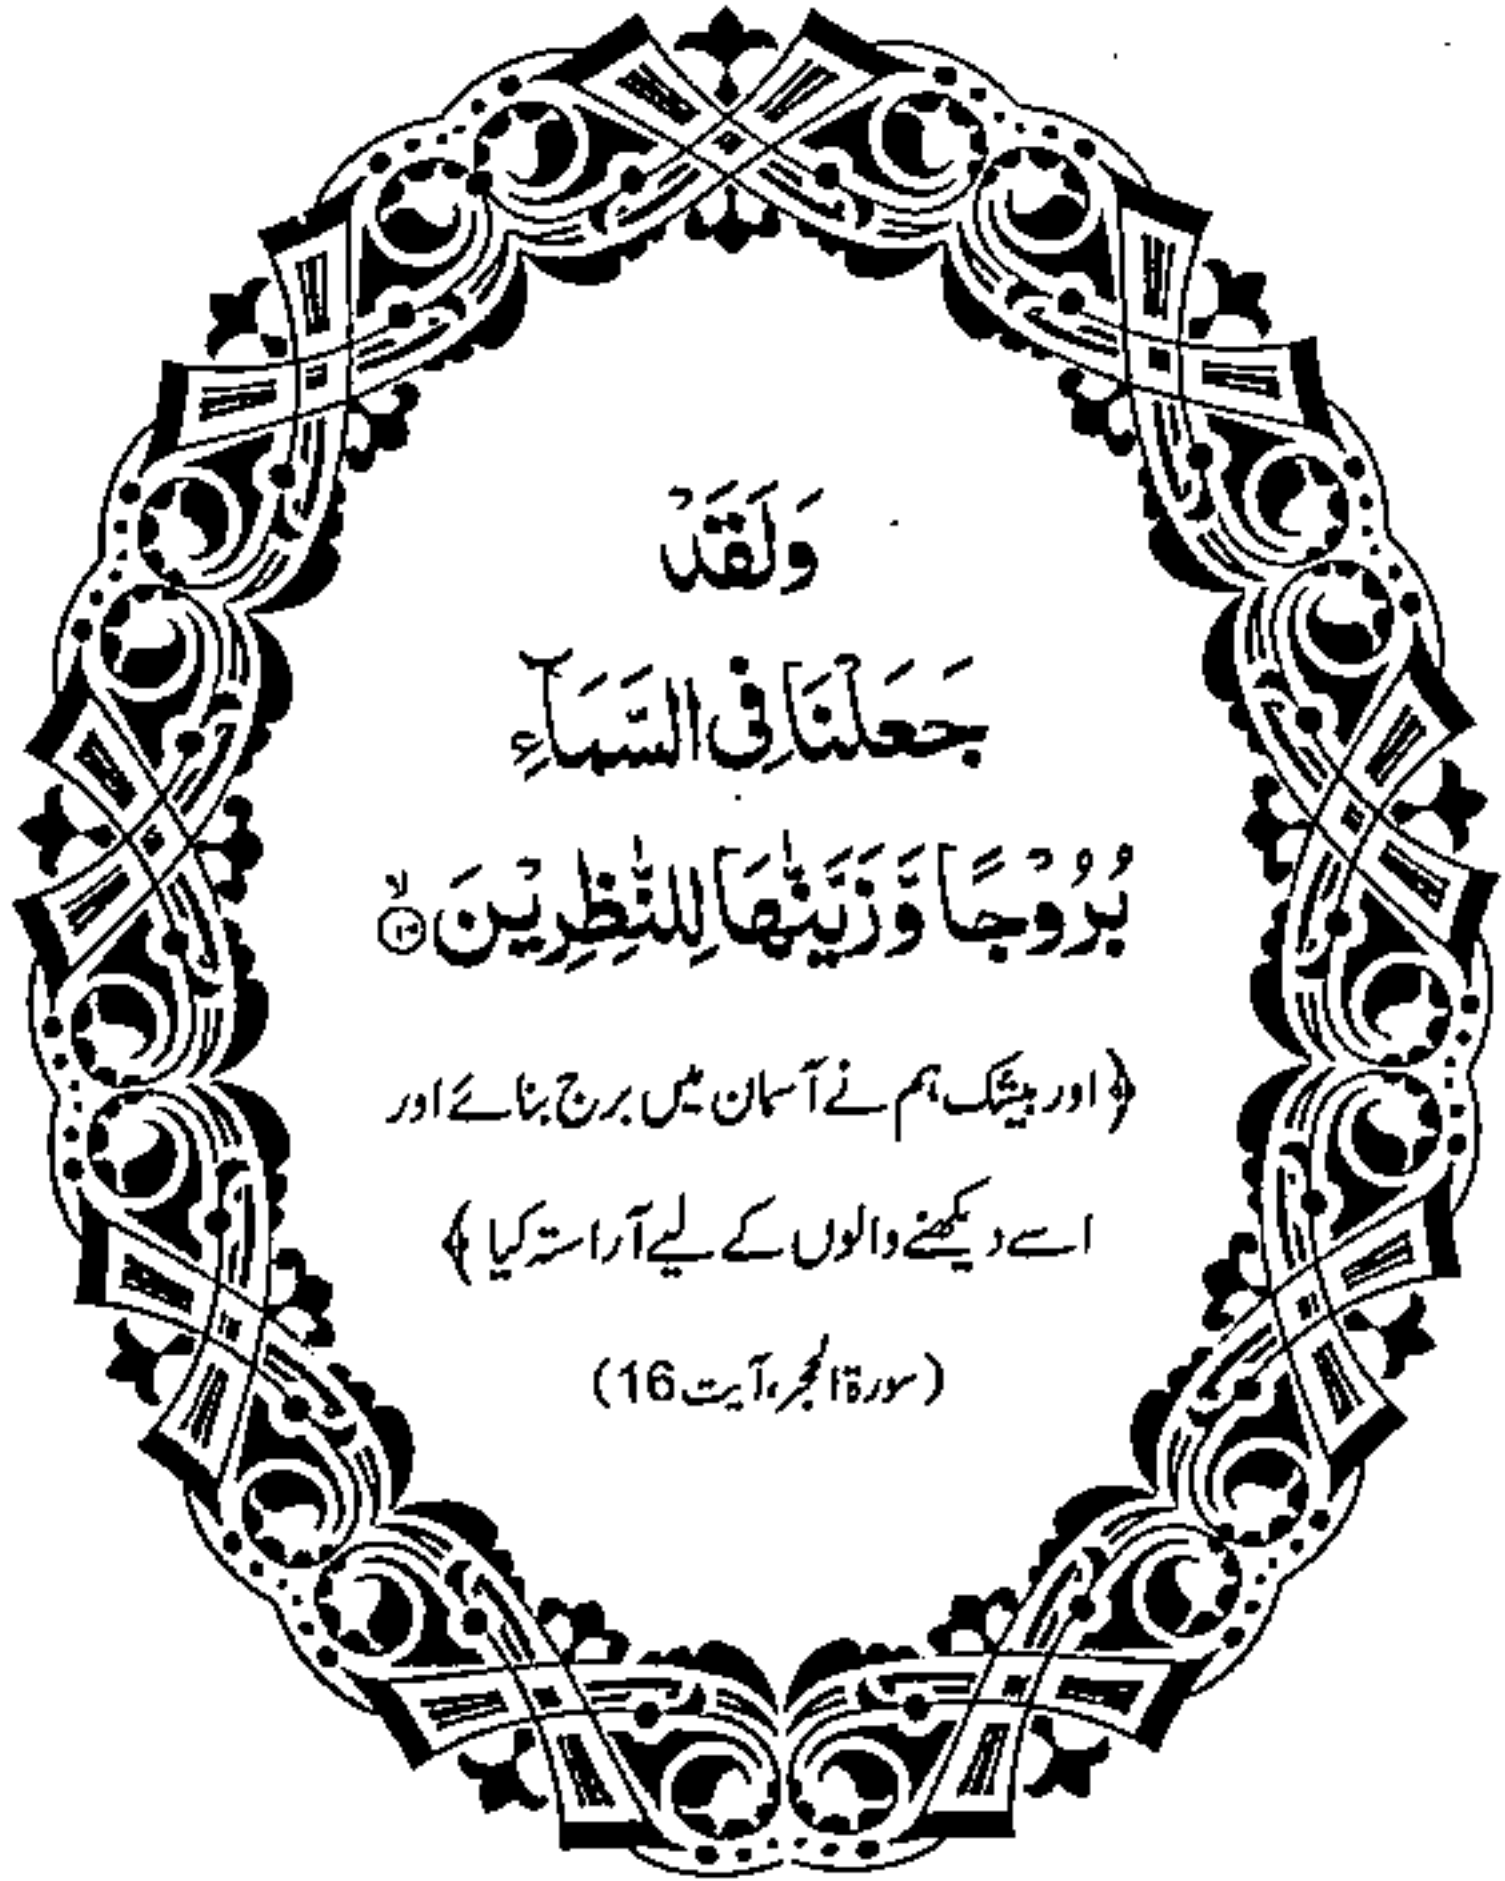 وَلَقَدْ
جَعَلْنَا فِی السَّمَآءِ
بُرُوْجًا وَّ زَیَّنّٰهَا لِلنّٰظِرِیْنَ ۙ
﴿ اور بیشک ہم نے آسمان میں برج بنائے اور
اسے دیکھنے والوں کے لیے آراستہ کیا ﴾
(سورۃ الحجر، آیت 16)